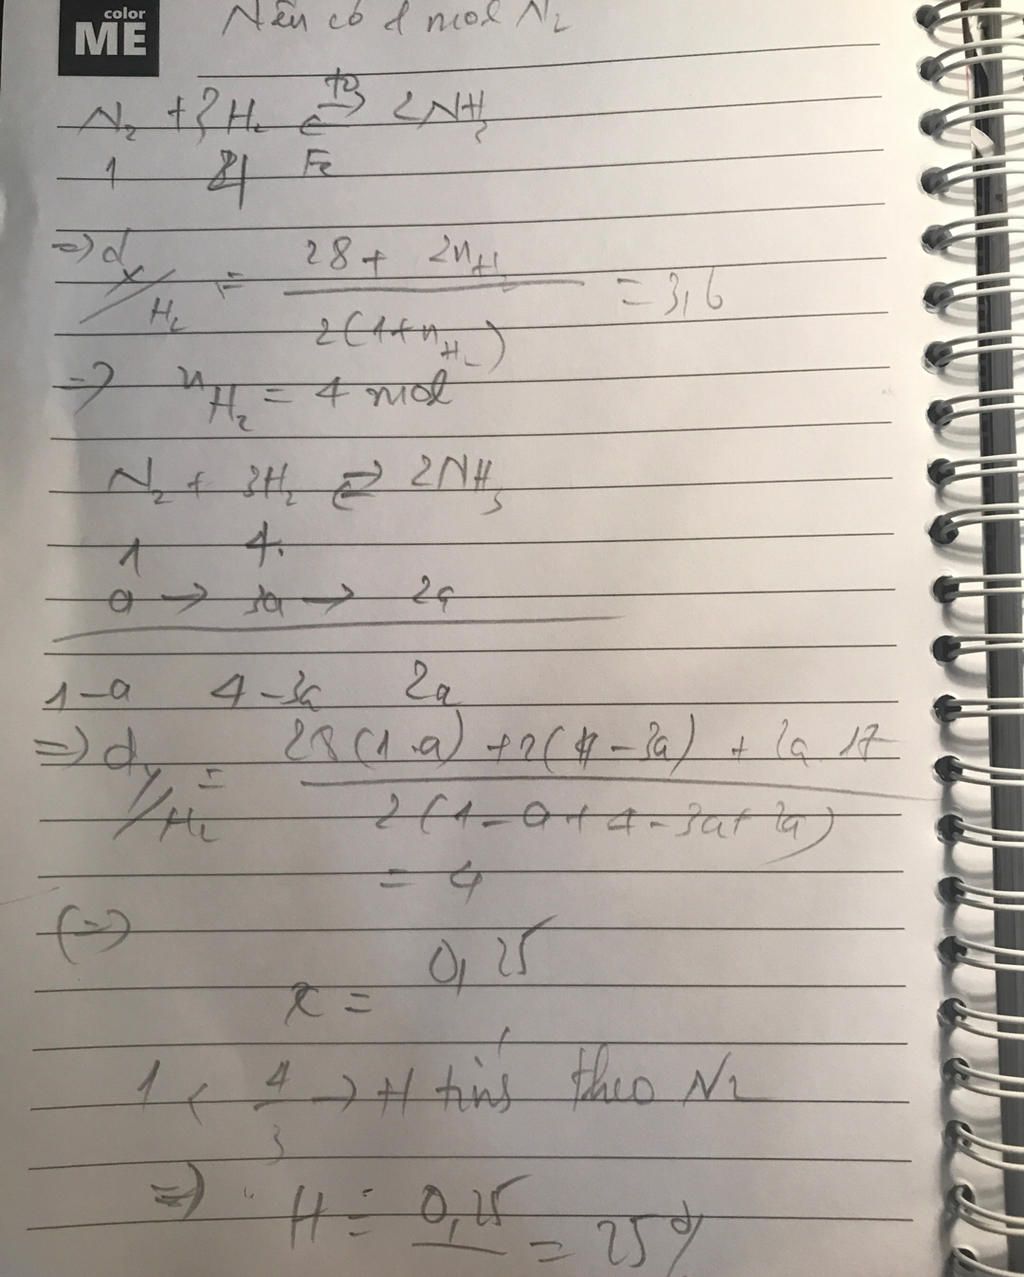 color
ME
Nếu có 1 mol N2
N2 + 3H2 ⇄ 2NH3
1 Fe
=> d X/H2 = (28 + 2nH2) / (2(1+nH2)) = 3,6
=> nH2 = 4 mol
N2 + 3H2 ⇄ 2NH3
1 4
a -> 3a -> 2a
1-a 4-3a 2a
=> d Y/H2 = (28(1-a) + 2(4-3a) + 2a.17) / (2(1-a+4-3a+2a))
= 4
(=)
x = 0,25
1 < 4/3 -> H tính theo N2
=> H = 0,25 = 25%